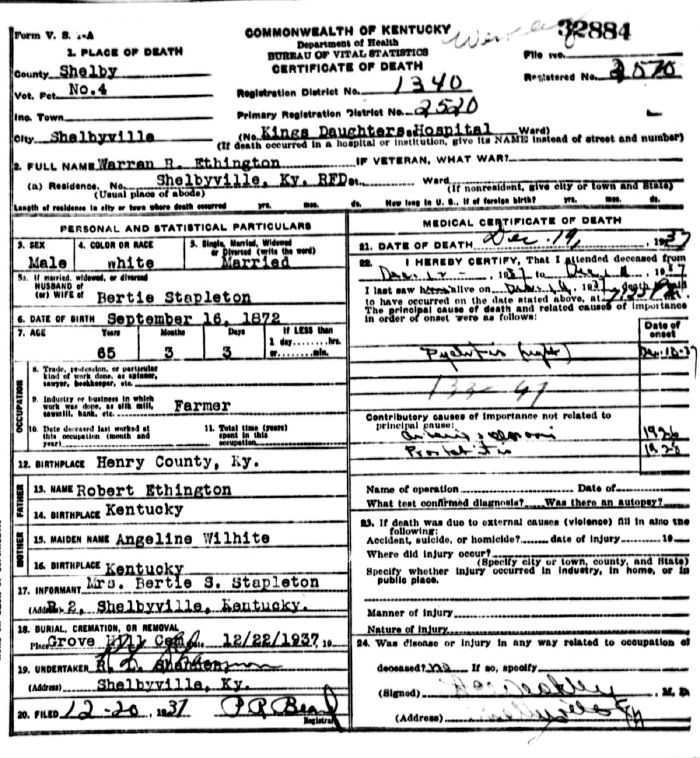 Form V. S. 1-A
COMMONWEALTH OF KENTUCKY
Department of Health
BUREAU OF VITAL STATISTICS
CERTIFICATE OF DEATH
32884
File No.
Registered No. 2570
1. PLACE OF DEATH
County Shelby
Vot. Pct. No.4
Inc. Town
City Shelbyville
Registration District No. 1340
Primary Registration District No. 2520
(No. Kings Daughters Hospital Ward)
(If death occurred in a hospital or institution, give its NAME instead of street and number)
2. FULL NAME Warran R. Ethington IF VETERAN, WHAT WAR?
(a) Residence. No. Shelbyville, Ky. RFD St. Ward
(Usual place of abode) (If nonresident, give city or town and State)
Length of residence in city or town where death occurred yrs. mos. ds. How long in U. S., if of foreign birth? yrs. mos. ds.
PERSONAL AND STATISTICAL PARTICULARS
3. SEX 4. COLOR OR RACE 5. Single, Married, Widowed
or Divorced (write the word)
Male white Married
5a. If married, widowed, or divorced
HUSBAND of
(or) WIFE of Bertie Stapleton
6. DATE OF BIRTH September 16, 1872
7. AGE Years Months Days If LESS than
1 day hrs.
65 3 3 or min.
OCCUPATION
8. Trade, profession, or particular
kind of work done, as spinner,
sawyer, bookkeeper, etc.
9. Industry or business in which
work was done, as silk mill,
sawmill, bank, etc. Farmer
10. Date deceased last worked at
this occupation (month and
year)
11. Total time (years)
spent in this
occupation
12. BIRTHPLACE Henry County, Ky.
FATHER
13. NAME Robert Ethington
14. BIRTHPLACE Kentucky
MOTHER
15. MAIDEN NAME Angeline Wilhite
16. BIRTHPLACE Kentucky
17. INFORMANT Mrs. Bertie S. Stapleton
(Address) R.2, Shelbyville, Kentucky.
18. BURIAL, CREMATION, OR REMOVAL
Place Grove Hill Cem 12/22/1937, 19
19. UNDERTAKER R. L.
(Address) Shelbyville, Ky.
20. FILED 12-20, 1937 P R Beard
Registrar
MEDICAL CERTIFICATE OF DEATH
21. DATE OF DEATH Dec 19, 1937
22. I HEREBY CERTIFY, That I attended deceased from
Dec. 12 1937 to Dec. 1937
I last saw alive on Dec. 1937 death
to have occurred on the date stated above, at
The principal cause of death and related causes of importance
in order of onset were as follows:
Date of
onset
Pyelitis (right)
133
Contributory causes of importance not related to
principal cause:
1926
Prostatitis 1928
Name of operation Date of
What test confirmed diagnosis? Was there an autopsy?
23. If death was due to external causes (violence) fill in also the
following:
Accident, suicide, or homicide? date of injury 19
Where did injury occur?
(Specify city or town, county, and State)
Specify whether injury occurred in industry, in home, or in
public place.
Manner of injury
Nature of injury
24. Was disease or injury in any way related to occupation of
deceased? no If so, specify
(Signed) M. D.
(Address) Shelbyville Ky